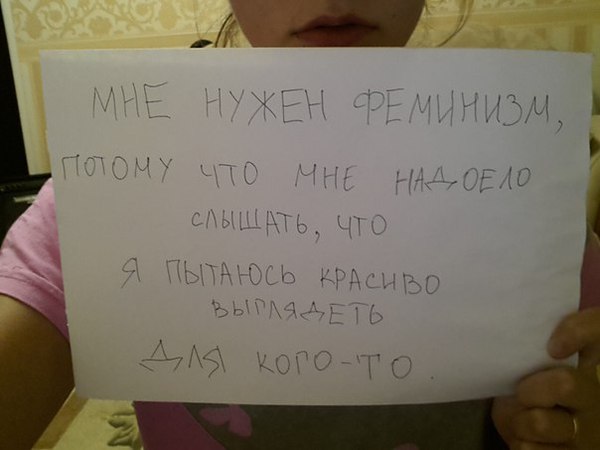 МНЕ НУЖЕН ФЕМИНИЗМ,
ПОТОМУ ЧТО МНЕ НАДОЕЛО
СЛЫШАТЬ, ЧТО
Я ПЫТАЮСЬ КРАСИВО
ВЫГЛЯДЕТЬ
ДЛЯ КОГО-ТО.